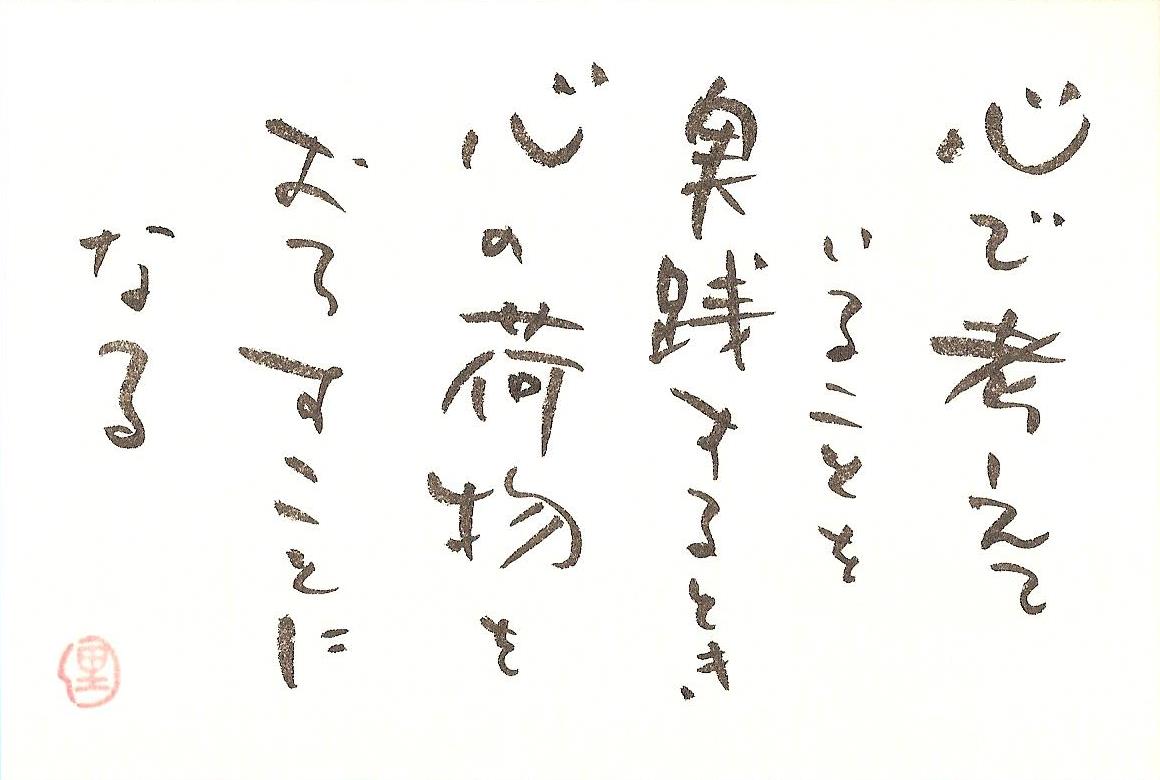 心で考えて
いることを
実践するとき
心の荷物を
おろすことに
なる
里